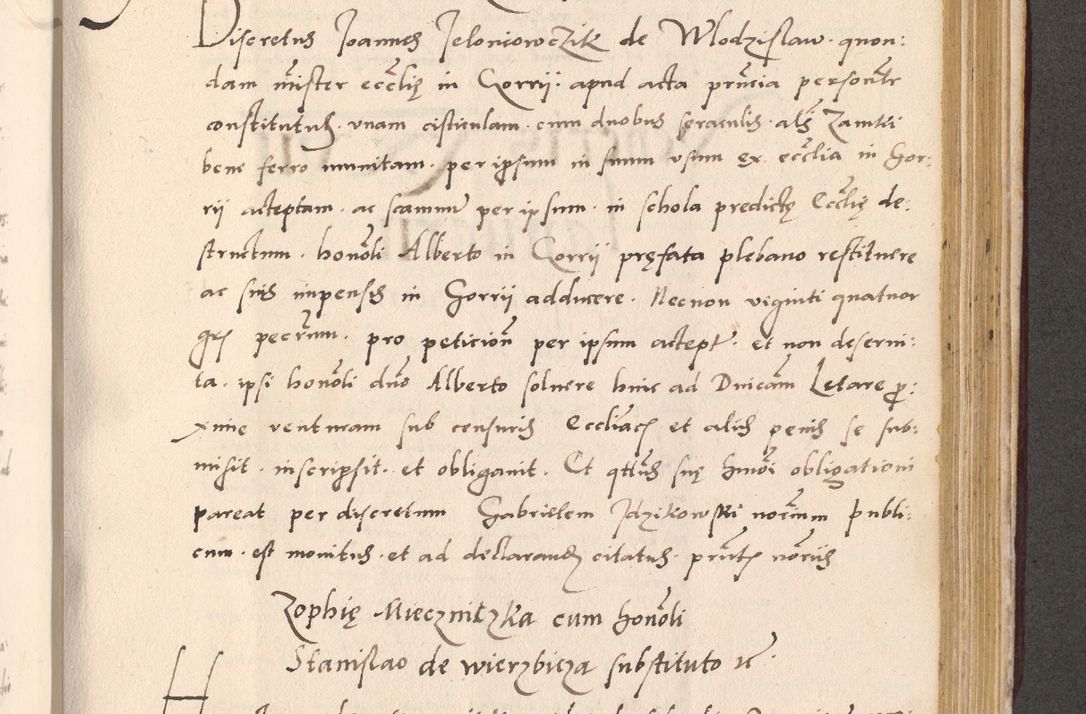 Discretus Joannes Jeloniowczik de Wlodzislaw. quon:
dam mister ecclię in Gorrii. apud acta pñcia personłr
constitutus. vnam cisticulam. cum duobus seraculis. als Zamki
bene ferro munitam. per ipsum in suum vsum ex ecclia in Gor:
rii acceptam. ac scamnũ per ipsum. in schola predictę Ecclię de:
structum. honorli Alberto in Gorrii pręfata plebano restituere
ac suis impensis in Gorrii adducere. Necnon viginti quatuor
grs pecũrum. pro peticioñ per ipsum accept. et non deserui:
ta. ipsi honorli dno Alberto soluere hinc ad Dnicam Letare p:
xime venturam sub censuris Eccliacis et aliis penis se sub:
misit. inscripsit. et obligauit. Et qtus suę hmoi obligationi
pareat per discretum Gabrielem Jdzikowski norium publi:
cum. est monitus. et ad declarand citatus. pñtes noriis
Zophię Mieczniczka cum honorli
Stanislao de Wierzbicza substituto etc.